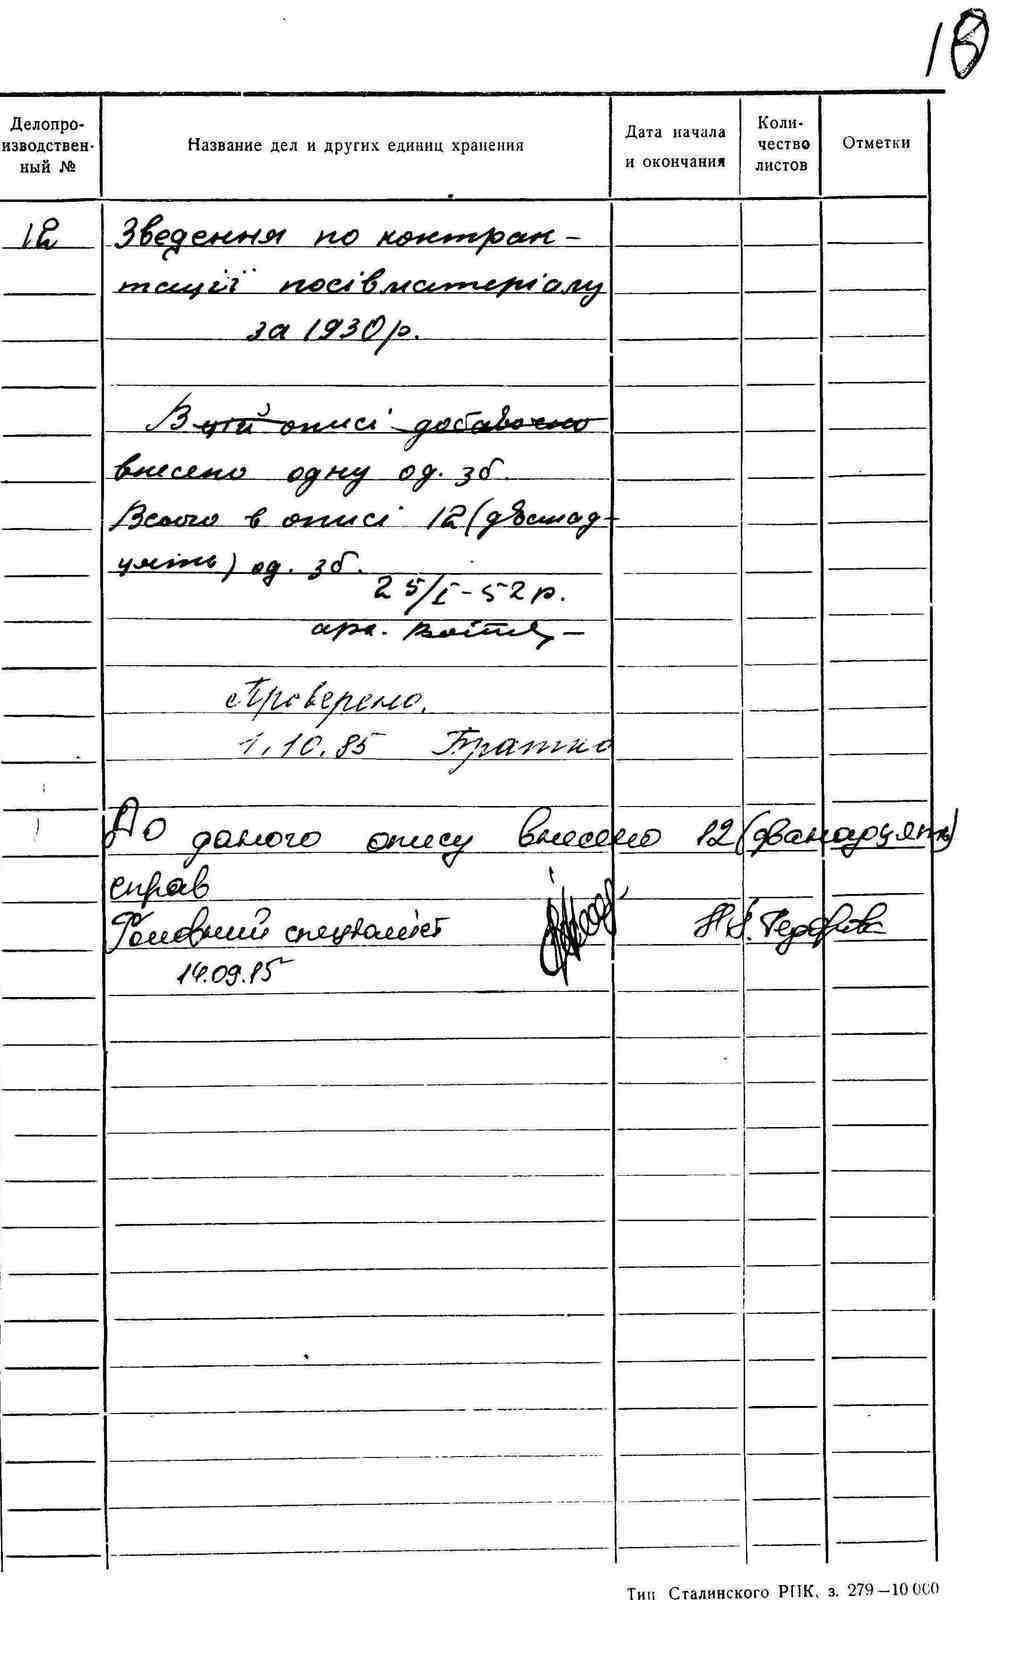 18
Делопро-
изводствен-
ный №
Название дел и других единиц хранения
Дата начала
и окончания
Коли-
чество
листов
Отметки
12 Зведення по контрак-
тації посівматеріалу
за 1930 р.
В цій описі добавочно
внесено одну од. зб.
Всього в описі 12 (дванад-
цять) од. зб.
25/I-52 р.
арх.
Проверено.
1.10.85
До даного опису внесено 12 (дванадцять)
справ
Головний спеціаліст
14.09.
Тип Сталинского РПК, з. 279—10 000